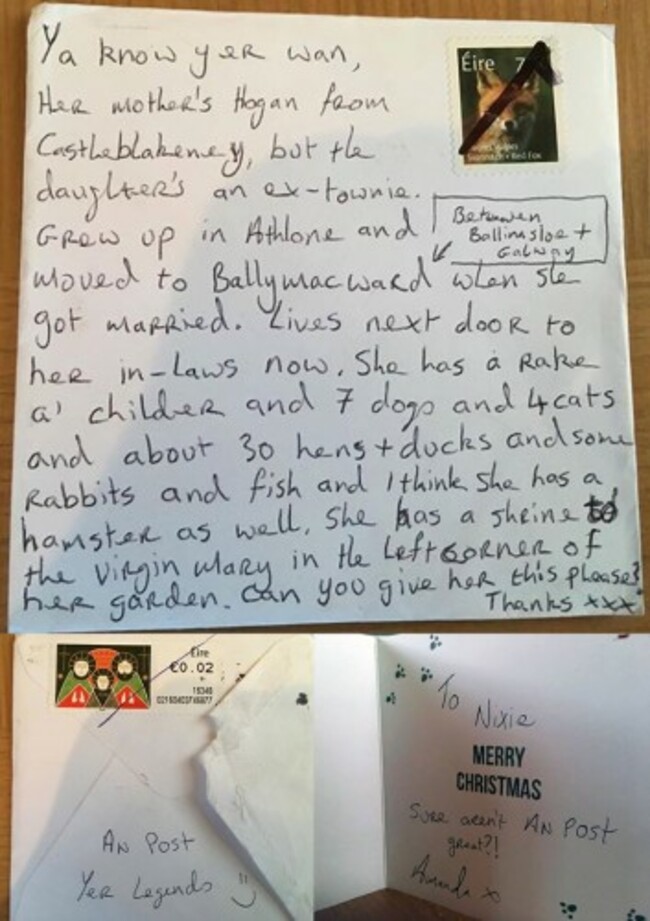 Ya know yer wan,
Éire 7
Her mother's Hogan from
Castleblakeney, but the
Red Fox
daughter's an ex-townie.
Grew up in Athlone and
Between
Ballinasloe +
Galway
moved to Ballymacward when she
got married. Lives next door to
her in-laws now. She has a rake
a' childer and 7 dogs and 4 cats
and about 30 hens + ducks and some
rabbits and fish and I think she has a
hamster as well. She has a shrine to
the Virgin Mary in the left corner of
her garden. Can you give her this please?
Thanks xxx
Éire
€0.02
An Post
Yer Legends
To Nixie
MERRY
CHRISTMAS
Sure aren't An Post
great?!
Amanda x